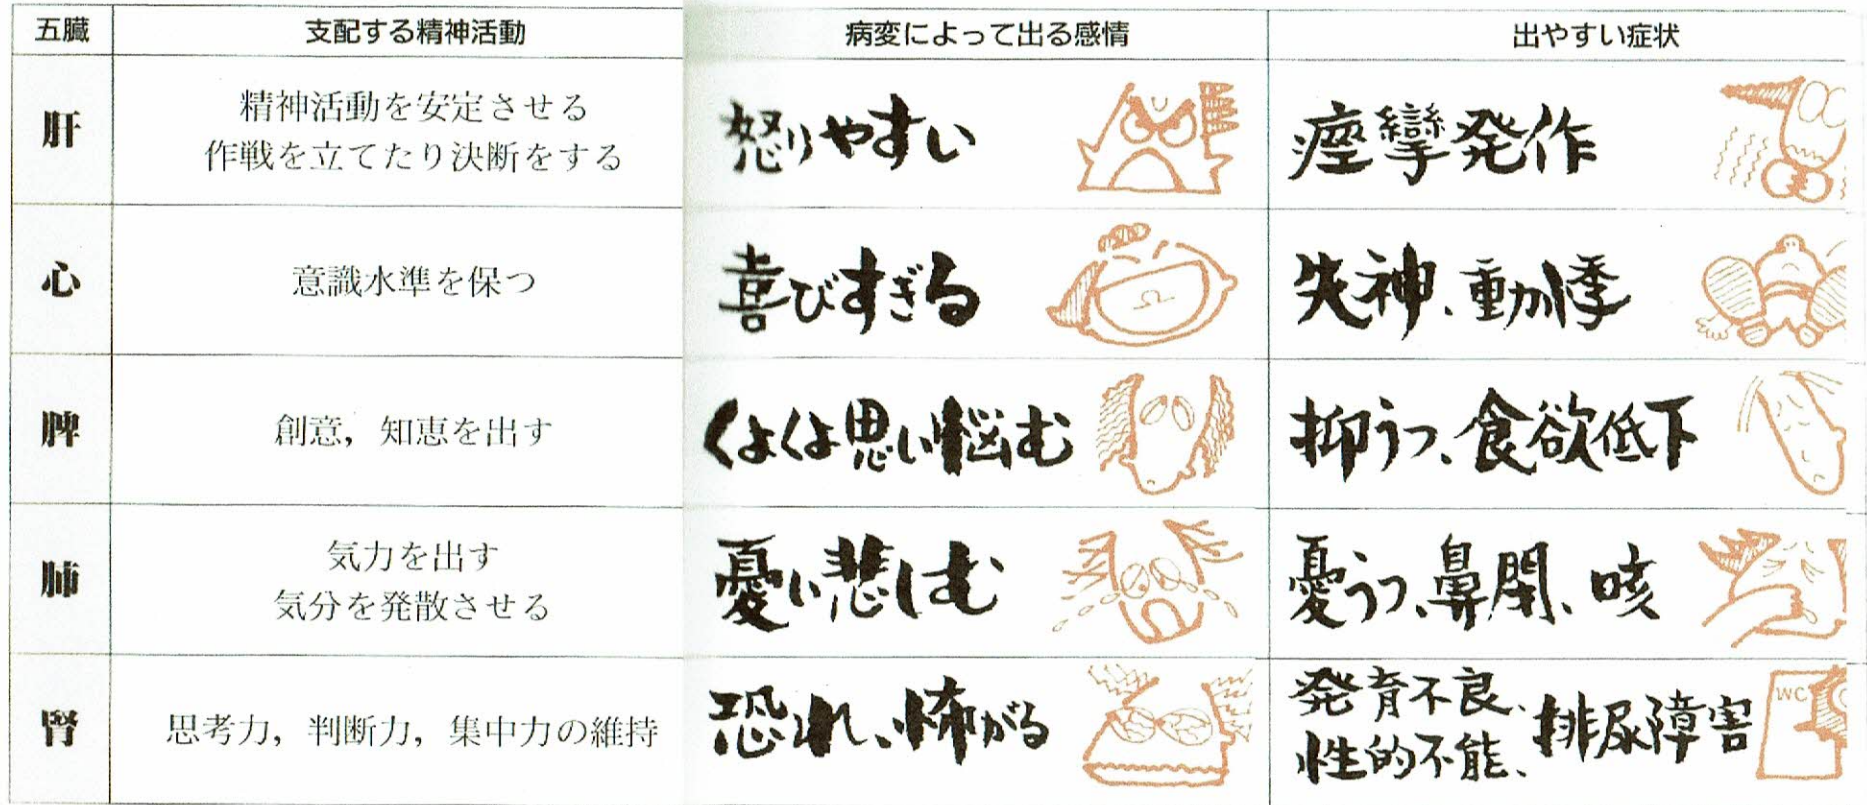 五臓 支配する精神活動 病変によって出る感情 出やすい症状
肝
精神活動を安定させる
作戦を立てたり決断をする
怒りやすい
痙攣発作
心
意識水準を保つ
喜びすぎる
失神、動悸
脾
創意，知恵を出す
くよくよ思い悩む
抑うつ、食欲低下
肺
気力を出す
気分を発散させる
憂い悲しむ
憂うつ、鼻閉、咳
腎
思考力，判断力，集中力の維持
恐れ、怖がる
発育不良、
性的不能、
排尿障害
WC